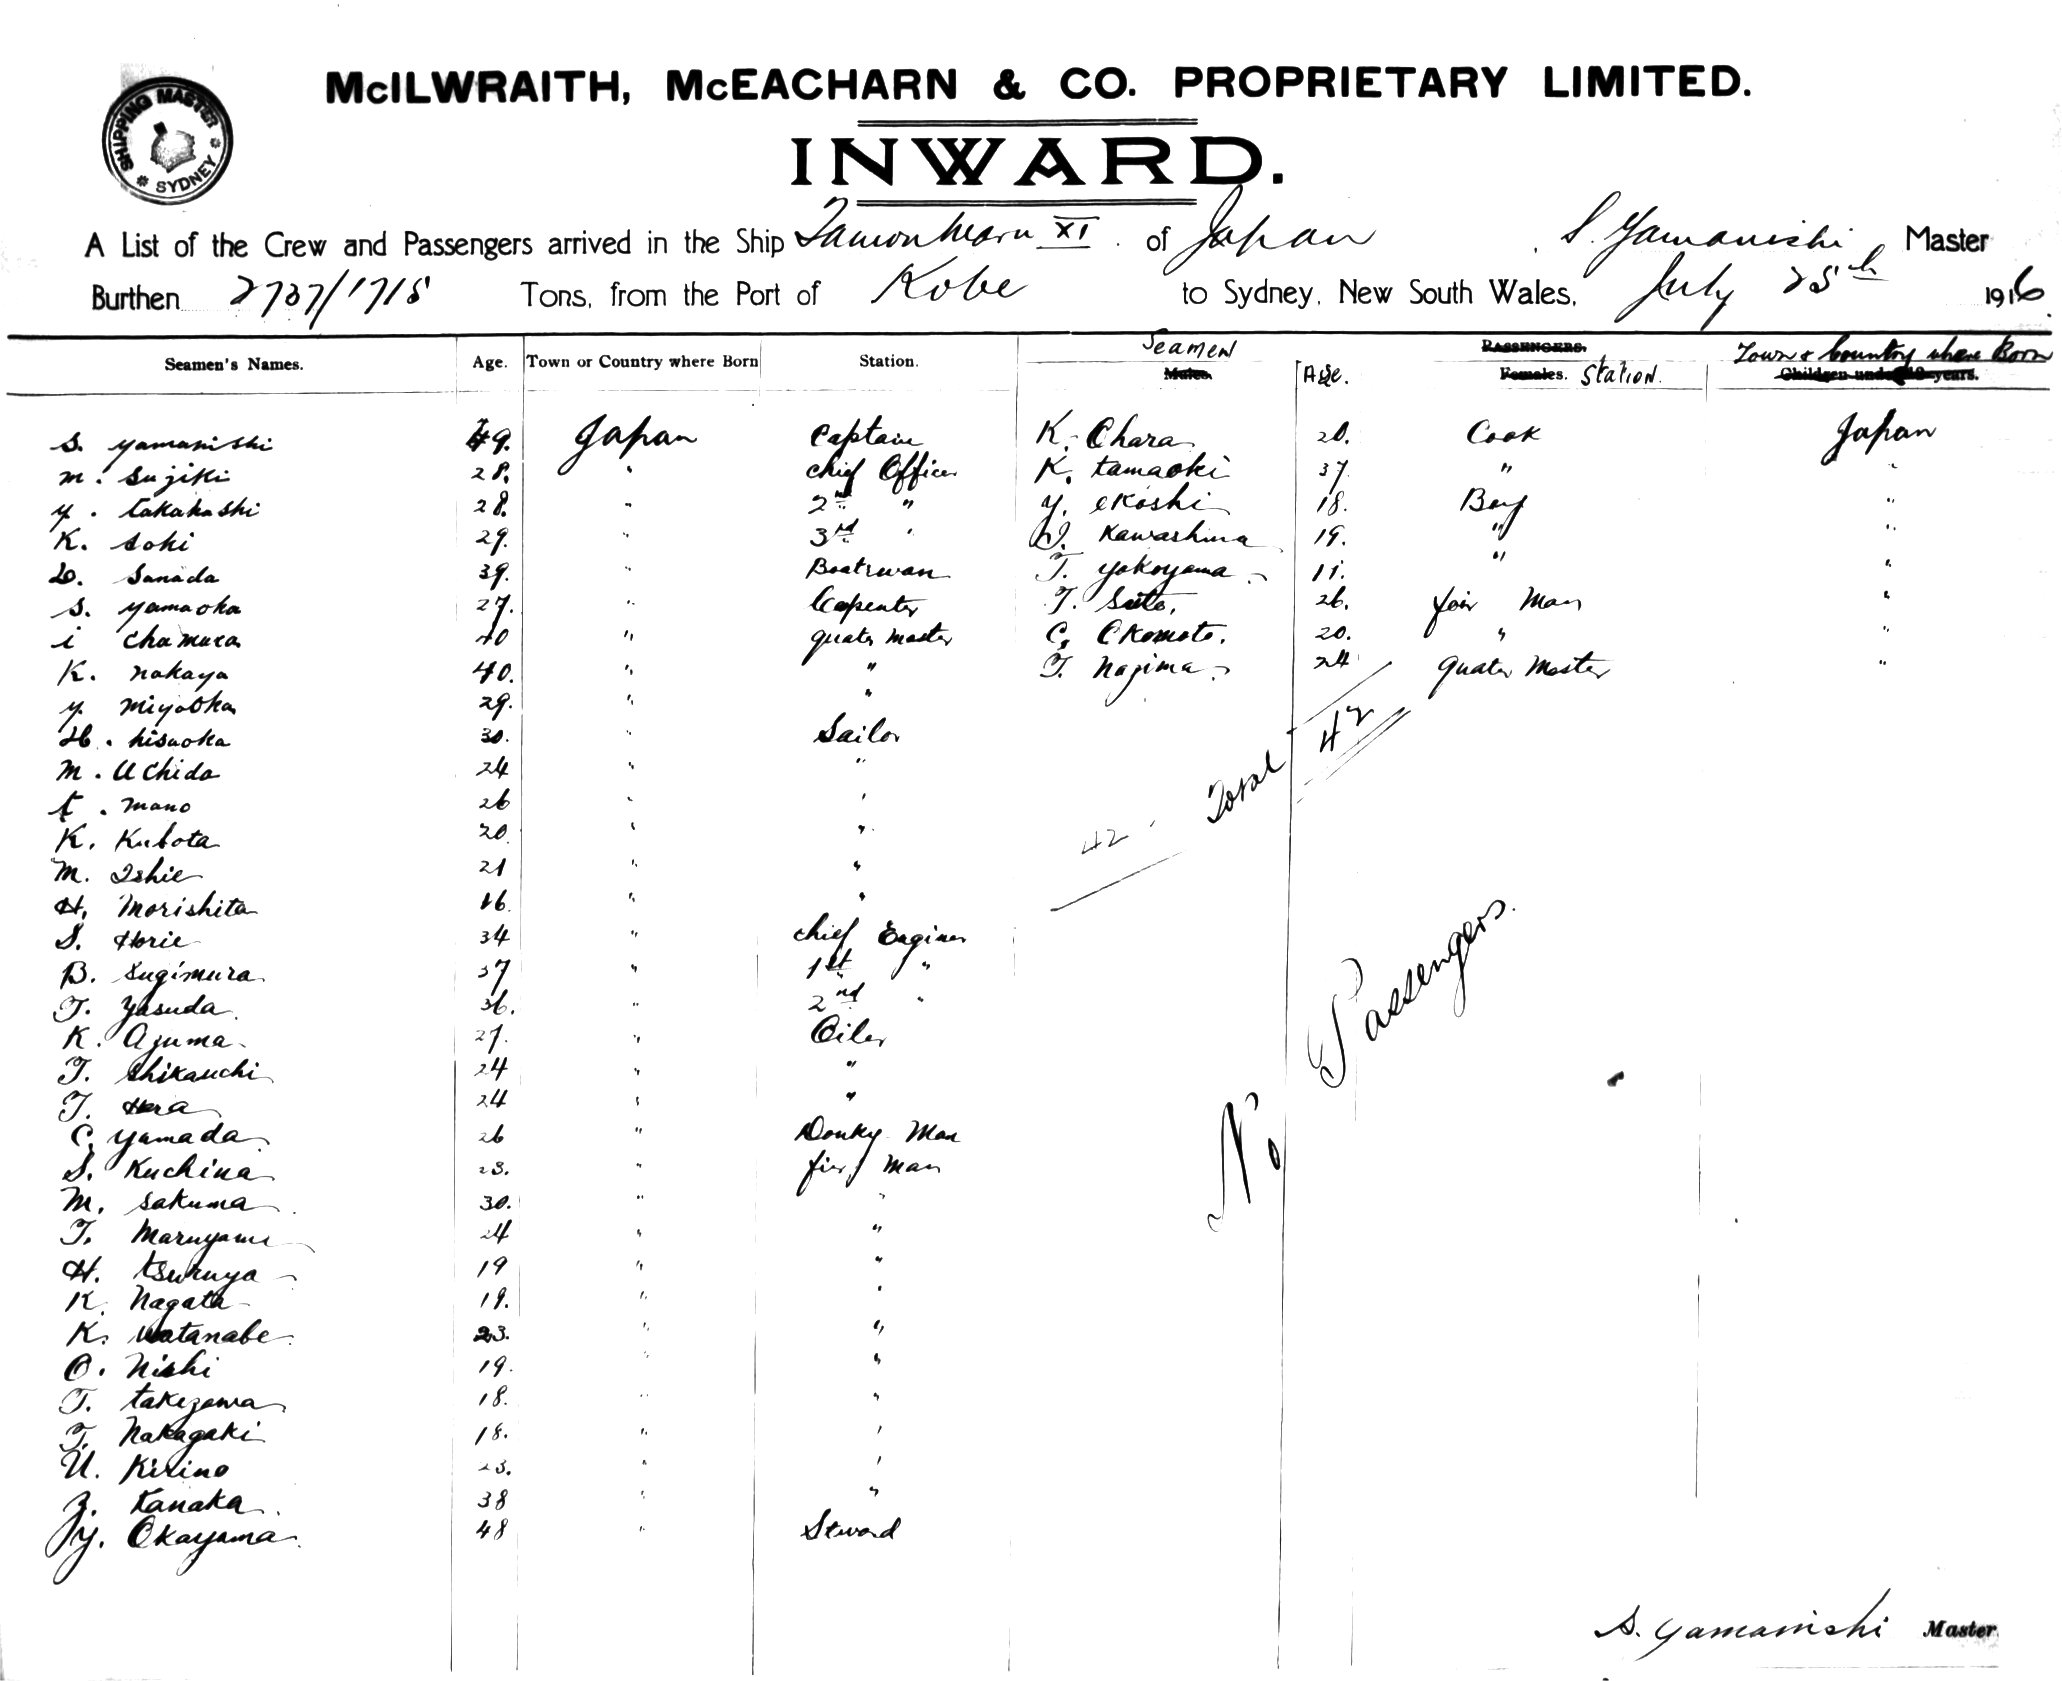 SHIPPING MASTER
* SYDNEY *
McILWRAITH, McEACHARN & CO. PROPRIETARY LIMITED.
INWARD.
A List of the Crew and Passengers arrived in the Ship XI of Japan S. Yamanishi Master
Burthen 2737/1715 Tons, from the Port of Kobe to Sydney, New South Wales, July 25th 1916
Seamen's Names. Age. Town or Country where Born Station. Seamen Males. Age. PASSENGERS. Females. Station. Town & Country where Born Children under 12 years.
S. yamanishi 49. Japan Captain K. Ohara 20. Cook Japan
m. sujiki 28. " chief Officer K. tamaoki 37. " "
y. takahashi 28. " 2nd " y. ekoshi 18. Boy "
K. sohi 29. " 3rd " kawashima 19. " "
sanada 39. " Boatswan T. yokoyama 11. " "
s. yamaoka 27. " Capenter T. Saito. 26. fair Man "
i chamura 40 " quater master C. Okomoto. 20. " "
K. nakaya 40. " " T. Nagima 24 quater Master "
y. miyaoka 29. " "
H. hisaoka 30. " Sailor
m. Uchida 24 " "
t. mano 26 " "
K. Kubota 20 " "
M. Ishie 21 " "
H. Morishita 16 " "
42 Total 42
S. Horie 34 " chief Enginer
B. Sugimura 37 " 1st "
T. Yasuda 36. " 2nd "
K. Azuma 27. " Oiler
T. Shikauchi 24 " "
T. Hara 24 " "
C. Yamada 26 " Donky Man
S. Kuchina 23. " fier Man
M. sakuma 30. " "
T. Maruyama 24 " "
H. tsuruya 19 " "
K. Nagata 19. " "
K. Watanabe 23. " "
O. Nishi 19. " "
T. takezawa 18. " "
T. Nakagaki 18. " "
U. Kirino 23. " "
Z. tanaka 38 " "
y. Okayama 48 " Steward
No Passengers.
S. Yamanishi Master